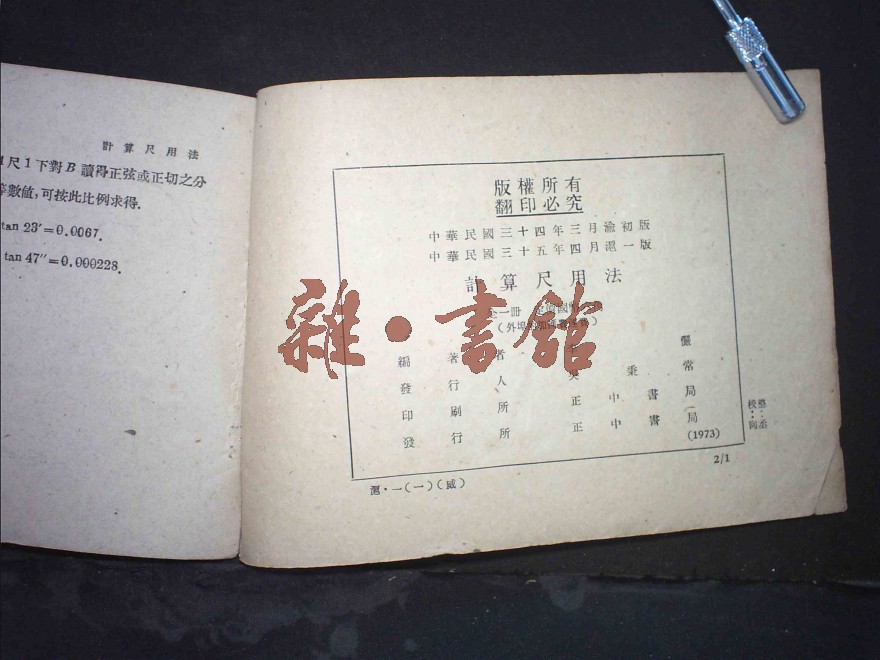 計算尺用法
尺1下對B讀得正弦或正切之分
等數値,可按此比例求得.
tan 23′=0.0067.
tan 47″=0.000228.
版權所有
翻印必究
中華民國三十四年三月渝初版
中華民國三十五年四月滬一版
計算尺用法
全一冊
(外埠
編著者 儼
發行人 吳秉常
印刷所 正中書局
發行所 正中書局
(1973)
校:
2/1
滬·一(一)(威)
雜·書館